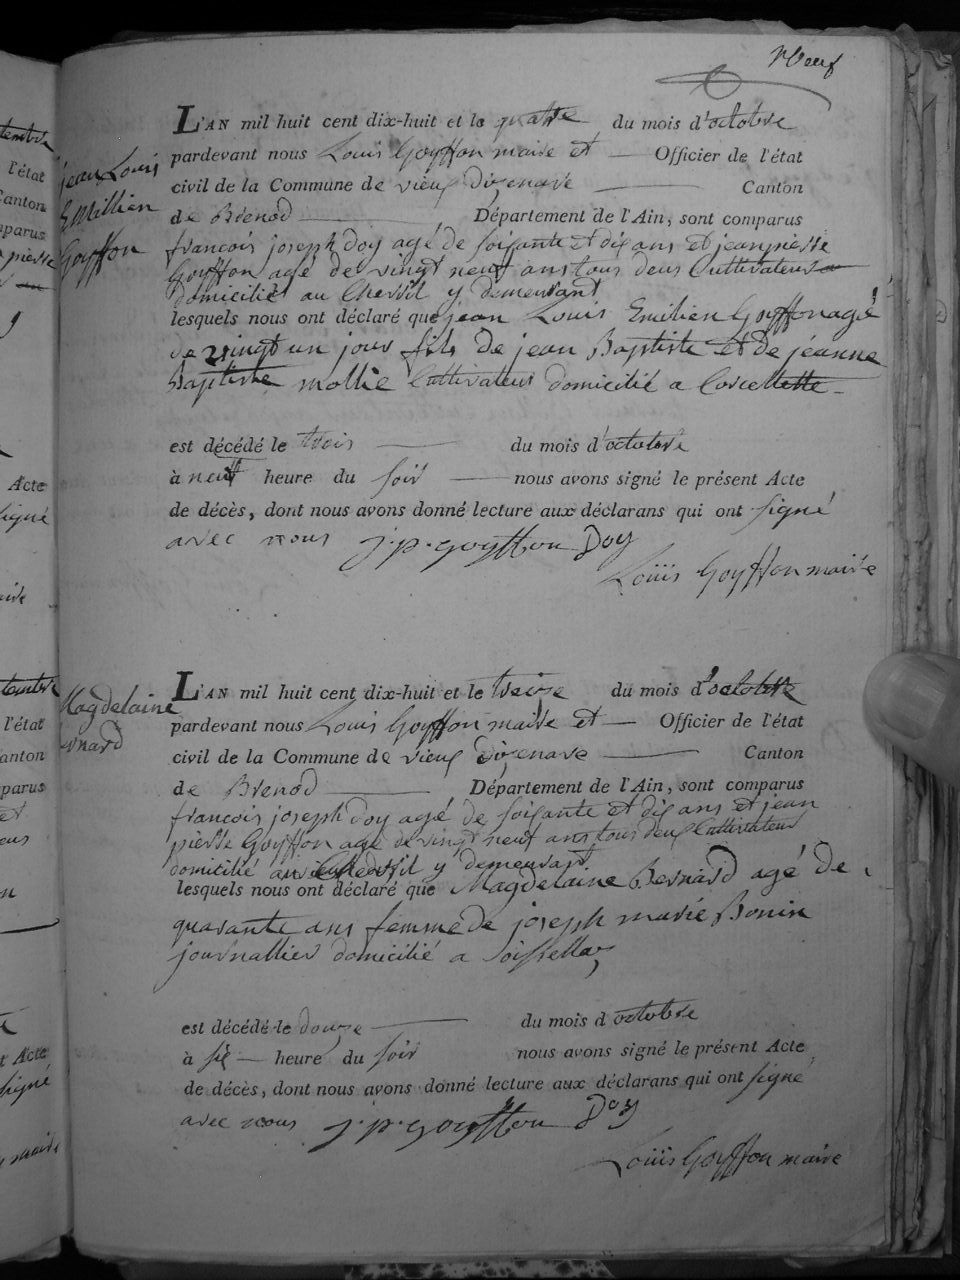 neuf
L'AN mil huit cent dix-huit et le quatre du mois d'octobre
jean Louis
Emillien
Goyffon
pardevant nous Louis Goyffon maire et — Officier de l'état
civil de la Commune de vieux dizenave — Canton
de Brénod — Département de l'Ain, sont comparus
francois joseph Doy agé de soixante et dix ans et jean pierre
Goyffon agé de vingt neuf ans tous deux Cultivateurs
domiciliés au Chevril y demeurant
lesquels nous ont déclaré que jean Louis Emilien Goyffon agé
de vingt un jour fils de jean Baptiste et de jéanne
Baptiste mollie Cultivateur domicilié a Corcelette
est décédé le trois — du mois d'octobre
à neuf heure du soir — nous avons signé le présent Acte
de décès, dont nous avons donné lecture aux déclarans qui ont signé
avec nous j. p. goyffon Doy
Louis Goyffon maire
L'AN mil huit cent dix-huit et le treize du mois d'octobre
Magdelaine
pardevant nous Louis Goyffon maire et — Officier de l'état
civil de la Commune de vieux dizenave — Canton
de Brenod — Département de l'Ain, sont comparus
francois joseph Doy agé de soixante et dix ans et jean
pierre Goyffon agé de vingt neuf ans tous deux Cultivateur
domicilié au Chevril y demeurant
lesquels nous ont déclaré que Magdelaine Bernard agé de
quarante ans femme de joseph marie Bonin
journallier domicilié a
est décédé le douze — du mois d octobre
à six — heure du soir nous avons signé le présent Acte
de décès, dont nous avons donné lecture aux déclarans qui ont signé
avec nous j. p. goyffon Doy
Louis Goyffon maire